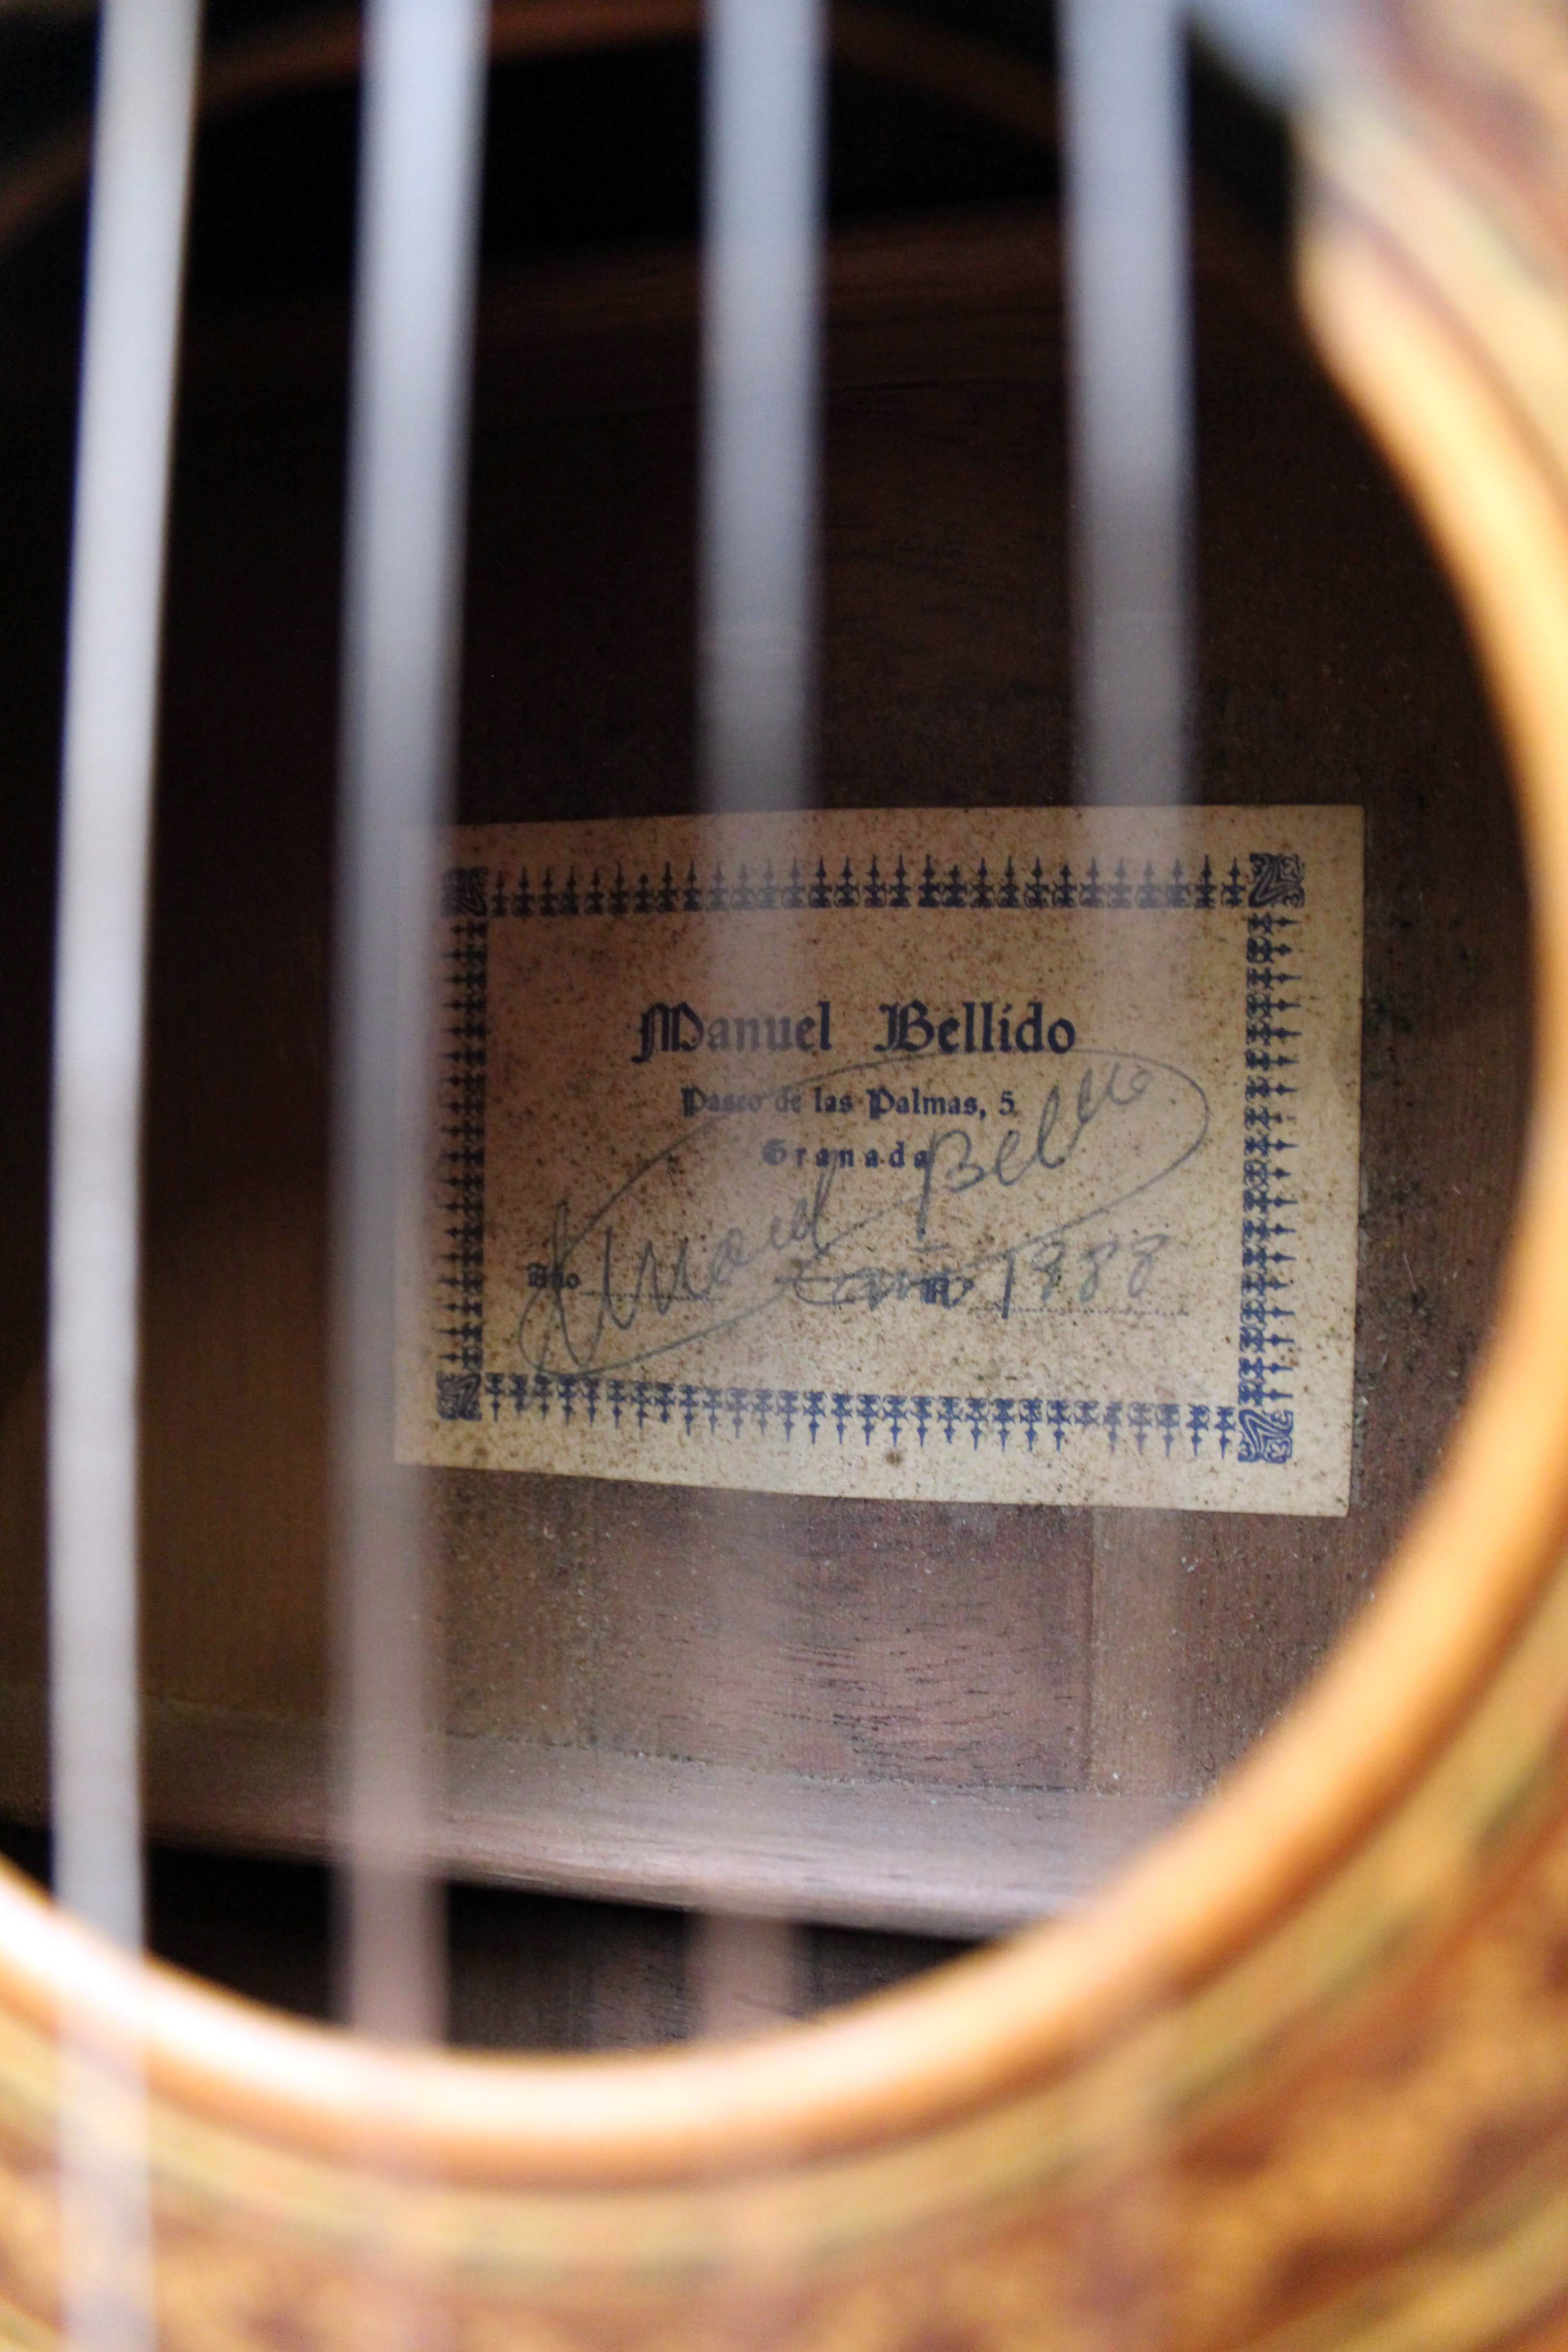 Manuel Bellido
Paseo de las Palmas, 5
Granada
Manuel Bellido
Año 1988